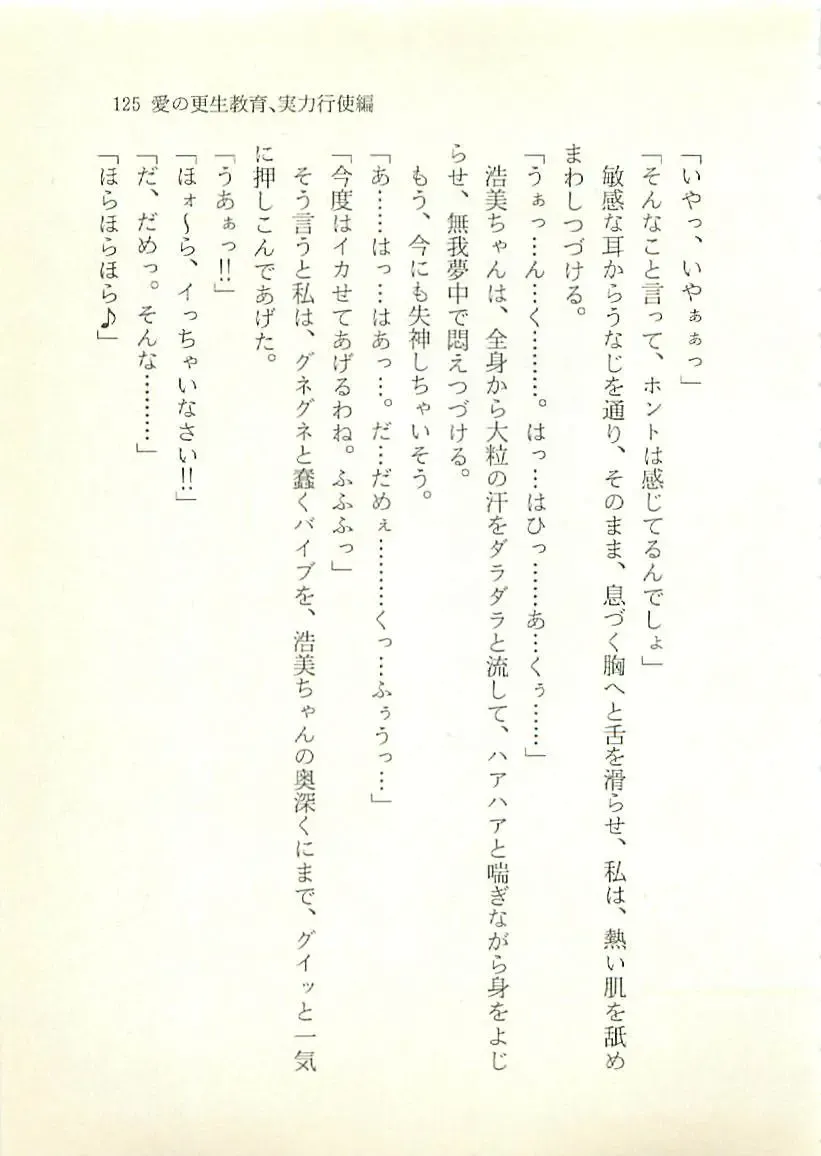 125 愛の更生教育、実力行使編
「いやっ、いやぁぁっ」
「そんなこと言って、ホントは感じてるんでしょ」
敏感な耳からうなじを通り、そのまま、息づく胸へと舌を滑らせ、私は、熱い肌を舐め
まわしつづける。
「うぁっ…ん…く………。はっ…はひっ……あ…くぅ……」
浩美ちゃんは、全身から大粒の汗をダラダラと流して、ハアハアと喘ぎながら身をよじ
らせ、無我夢中で悶えつづける。
もう、今にも失神しちゃいそう。
「あ……はっ…はあっ…。だ…だめぇ………くっ…ふぅうっ…」
「今度はイカせてあげるわね。ふふふっ」
そう言うと私は、グネグネと蠢くバイブを、浩美ちゃんの奥深くにまで、グイッと一気
に押しこんであげた。
「うあぁっ!!」
「ほォ〜ら、イっちゃいなさい!!」
「だ、だめっ。そんな………」
「ほらほらほら♪」